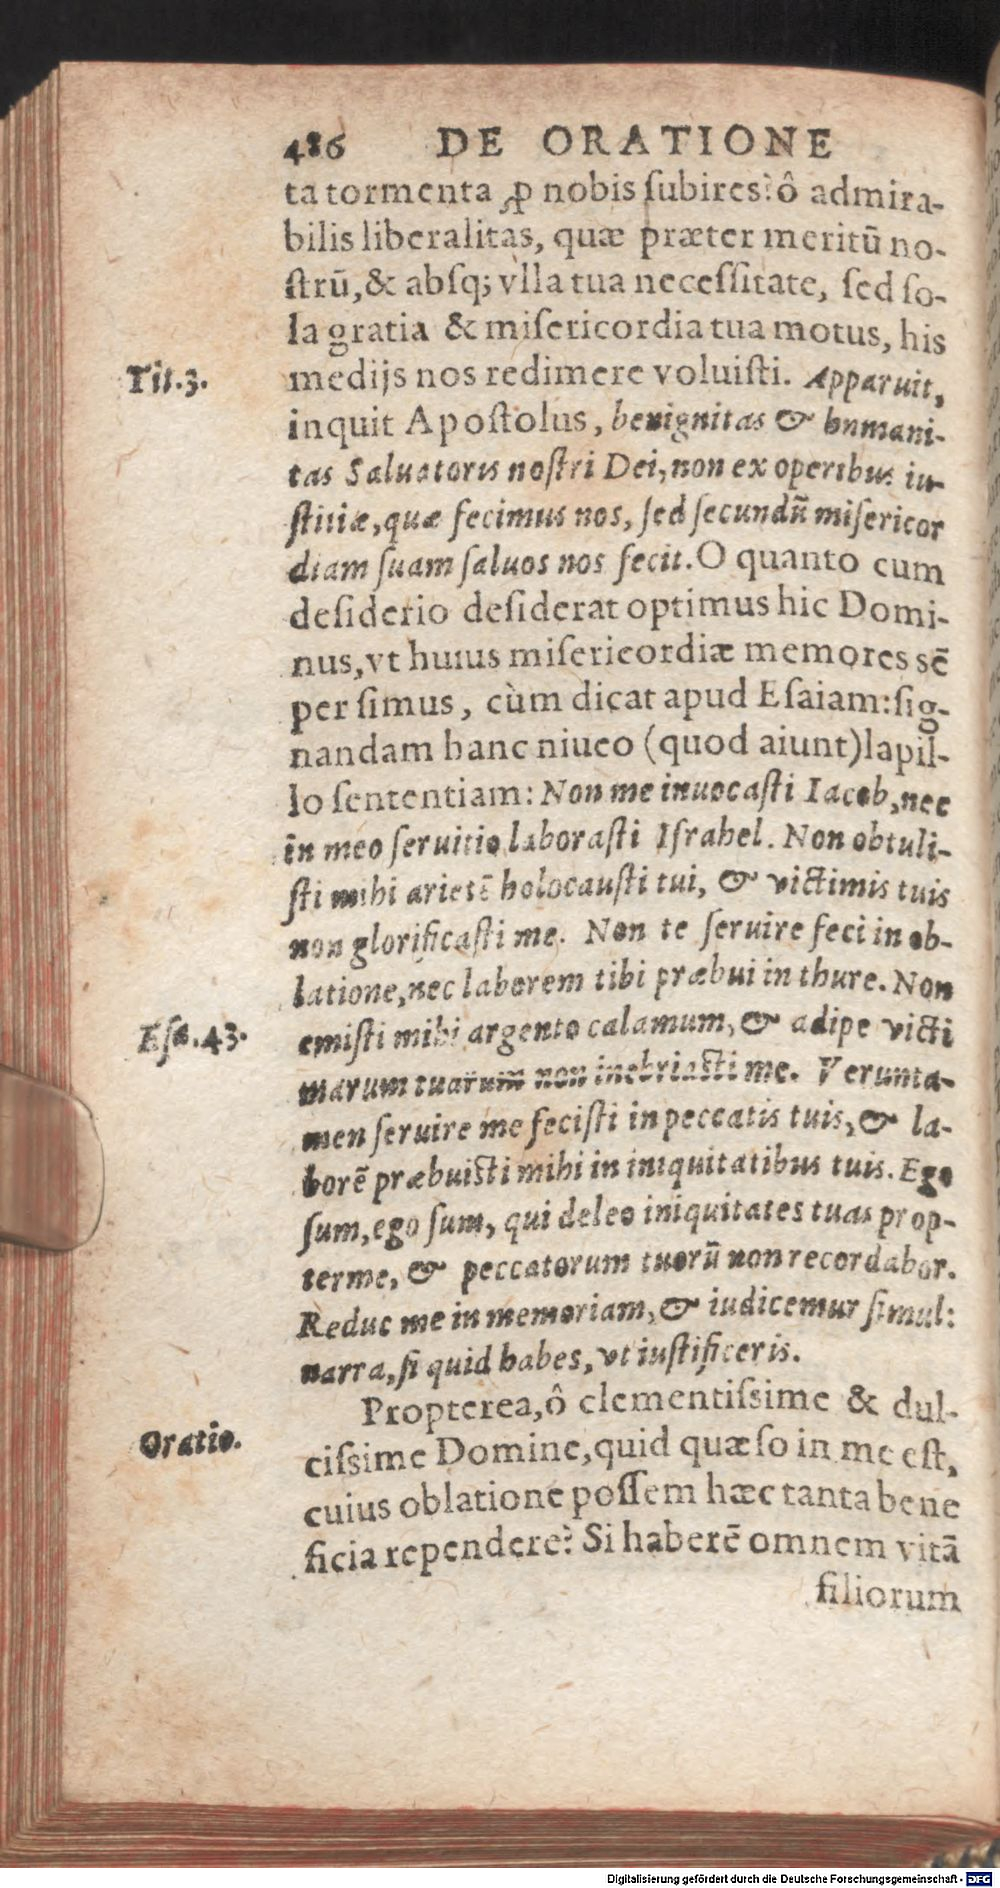 486 DE ORATIONE
ta tormenta ꝓ nobis ſubires? ô admira-
bilis liberalitas, quæ præter meritū no-
ſtrū, & abſq; vlla tua neceſſitate, ſed ſo-
la gratia & miſericordia tua motus, his
Tit. 3.
medijs nos redimere voluiſti. Apparuit,
inquit Apoſtolus, benignitas & humani-
tas Saluatoris noſtri Dei, non ex operibus iu-
ſtitiæ, quæ fecimus nos, ſed ſecundū miſericor
diam ſuam ſaluos nos fecit. O quanto cum
deſiderio deſiderat optimus hic Domi-
nus, vt huius miſericordiæ memores sē
per ſimus, cùm dicat apud Eſaiam: ſig-
nandam hanc niueo (quod aiunt) lapil-
lo ſententiam: Non me inuocaſti Iacob, nec
in meo ſeruitio laboraſti Iſrahel. Non obtuli-
ſti mihi arietē holocauſti tui, & victimis tuis
non glorificaſti me. Non te ſeruire feci in ob-
latione, nec laborem tibi præbui in thure. Non
Eſa. 43.
emiſti mihi argento calamum, & adipe victi
marum tuarum non inebriaſti me. Verunta-
men ſeruire me feciſti in peccatis tuis, & la-
borē præbuiſti mihi in iniquitatibus tuis. Ego
ſum, ego ſum, qui deleo iniquitates tuas prop-
terme, & peccatorum tuorū non recordabor.
Reduc me in memoriam, & iudicemur ſimul:
narra, ſi quid habes, vt iuſtificeris.
Propterea, ô clementiſſime & dul-
Oratio.
ciſſime Domine, quid quæſo in me eſt,
cuius oblatione poſſem hæc tanta bene
ficia rependere? Si haberē omnem vitā
filiorum
Digitalisierung gefördert durch die Deutsche Forschungsgemeinschaft - DFG